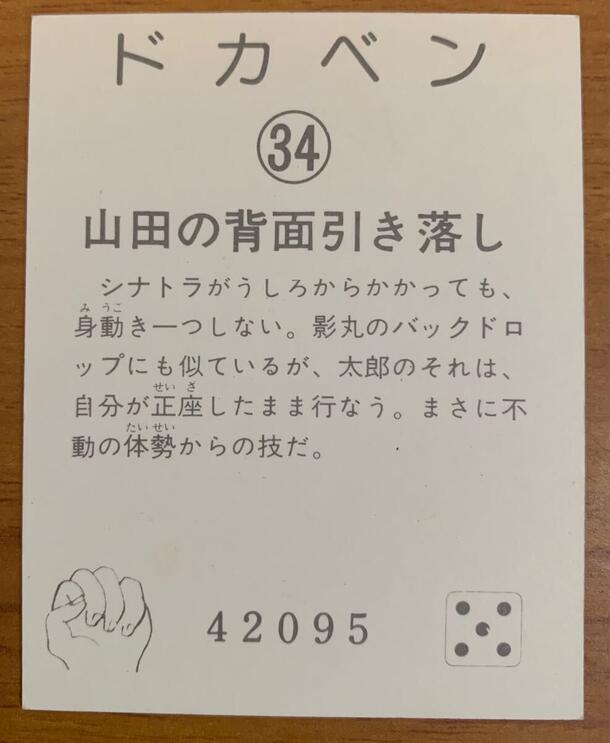 ドカベン
34
山田の背面引き落し
シナトラがうしろからかかっても、
身動き一つしない。影丸のバックドロ
ップにも似ているが、太郎のそれは、
自分が正座したまま行なう。まさに不
動の体勢からの技だ。
42095